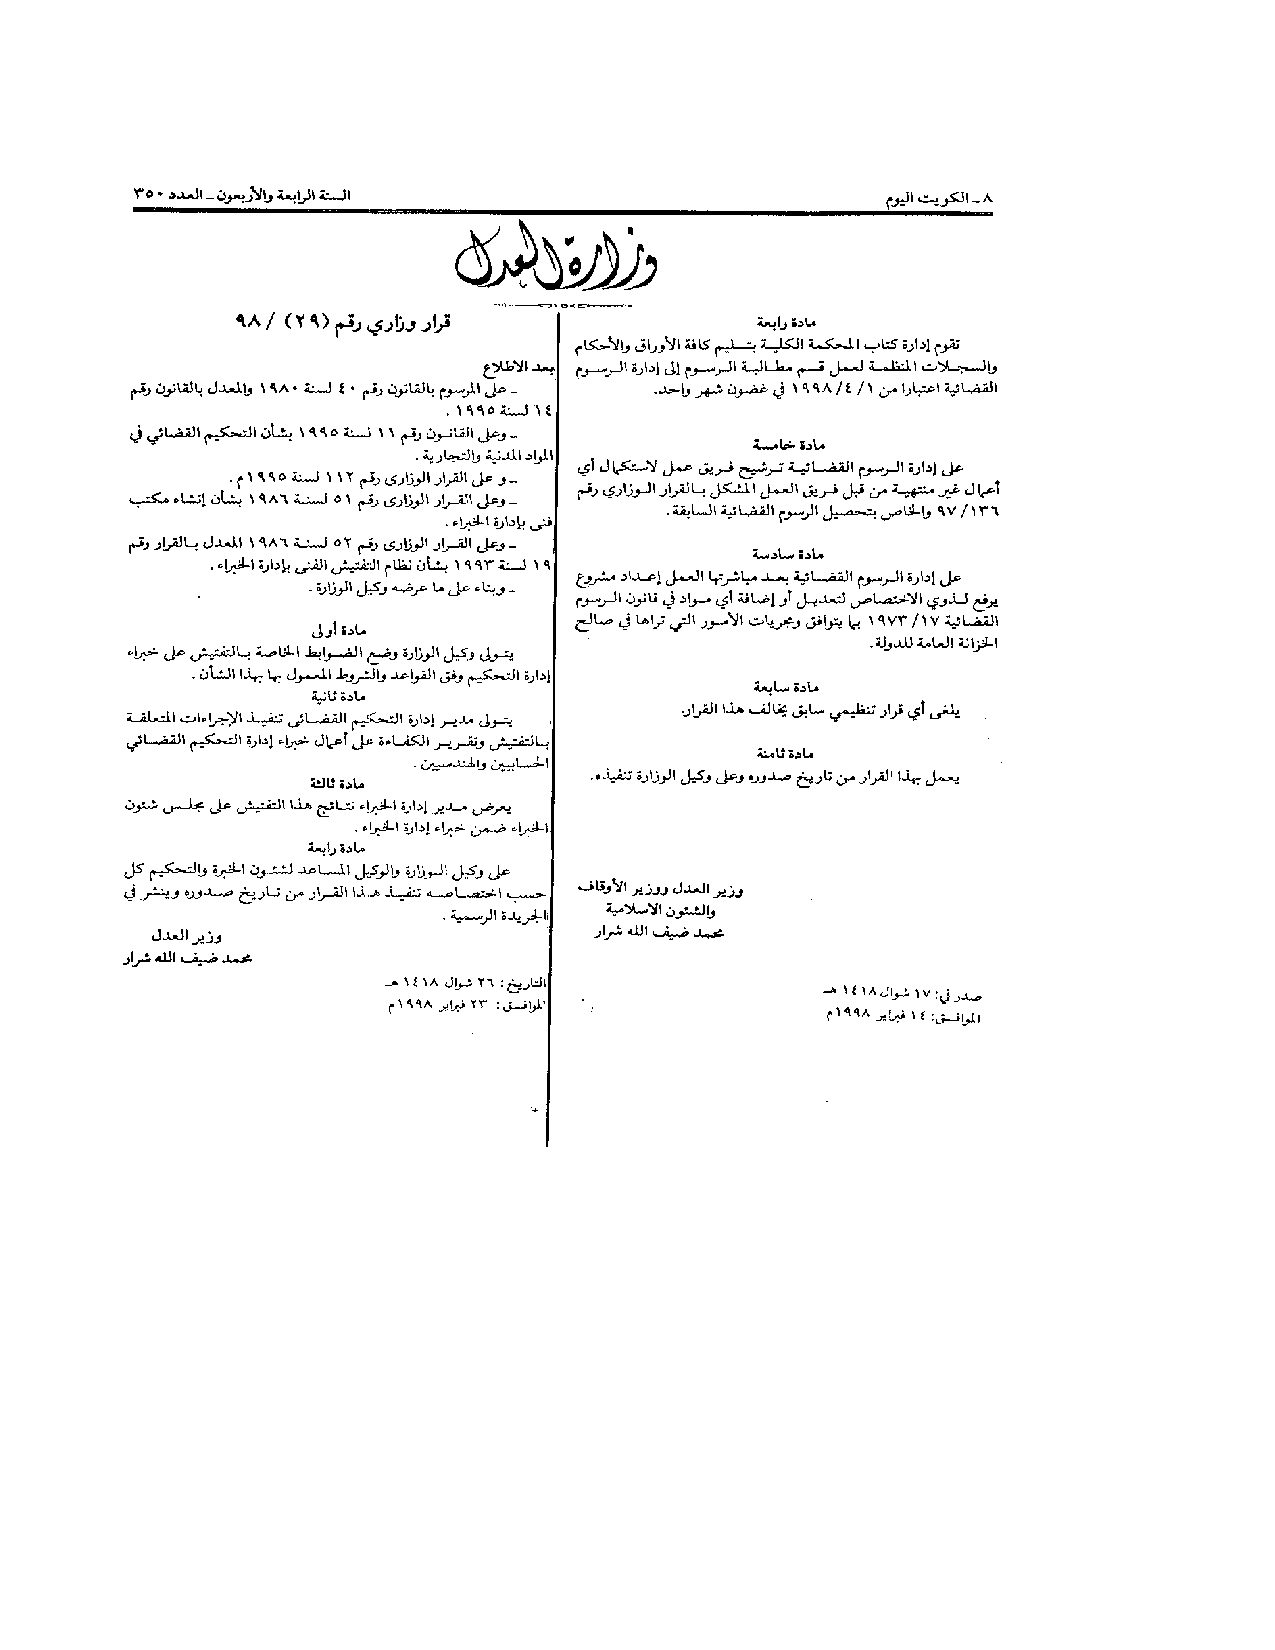 ٨ - الكويت اليوم
السنة الرابعة والأربعون - العدد ٣٥٠
وزارة العدل
مادة رابعة
تقوم إدارة كتاب المحكمة الكلية بتسليم كافة الأوراق والأحكام
والسجلات المنظمة لعمل قسم مطالبة الرسوم إلى إدارة الرسوم
القضائية اعتبارا من ١/ ٤/ ١٩٩٨ في غضون شهر واحد.
مادة خامسة
على إدارة الرسوم القضائية ترشيح فريق عمل لاستكمال أي
أعمال غير منتهية من قبل فريق العمل المشكل بالقرار الوزاري رقم
١٣٦/ ٩٧ والخاص بتحصيل الرسوم القضائية السابقة.
مادة سادسة
على إدارة الرسوم القضائية بعد مباشرتها العمل إعداد مشروع
يرفع لذوي الاختصاص لتعديل أو إضافة أي مواد في قانون الرسوم
القضائية ١٧/ ١٩٧٣ بما يتوافق ومجريات الأمور التي تراها في صالح
الخزانة العامة للدولة.
مادة سابعة
يلغى أي قرار تنظيمي سابق يخالف هذا القرار.
مادة ثامنة
يعمل بهذا القرار من تاريخ صدوره وعلى وكيل الوزارة تنفيذه.
وزير العدل ووزير الأوقاف
والشئون الاسلامية
محمد ضيف الله شرار
صدر في: ١٧ شوال ١٤١٨ هـ
الموافق: ١٤ فبراير ١٩٩٨م
قرار وزاري رقم (٢٩) / ٩٨
بعد الاطلاع
- على المرسوم بالقانون رقم ٤٠ لسنة ١٩٨٠ والمعدل بالقانون رقم
١٤ لسنة ١٩٩٥ .
- وعلى القانون رقم ١١ لسنة ١٩٩٥ بشأن التحكيم القضائي في
المواد المدنية والتجارية .
- و على القرار الوزارى رقم ١١٢ لسنة ١٩٩٥م .
- وعلى القرار الوزارى رقم ٥١ لسنة ١٩٨٦ بشأن إنشاء مكتب
فنى بإدارة الخبراء .
- وعلى القرار الوزارى رقم ٥٢ لسنة ١٩٨٦ المعدل بالقرار رقم
١٩ لسنة ١٩٩٣ بشأن نظام التفتيش الفنى بإدارة الخبراء .
- وبناء على ما عرضه وكيل الوزارة .
مادة أولى
يتولى وكيل الوزارة وضع الضوابط الخاصة بالتفتيش على خبراء
إدارة التحكيم وفق القواعد والشروط المعمول بها بهذا الشأن .
مادة ثانية
يتولى مدير إدارة التحكيم القضائى تنفيذ الإجراءات المتعلقة
بالتفتيش وتقرير الكفاءة على أعمال خبراء إدارة التحكيم القضائي
الحسابيين والهندسيين .
مادة ثالثة
يعرض مدير إدارة الخبراء نتائج هذا التفتيش على مجلس شئون
الخبراء ضمن خبراء إدارة الخبراء .
مادة رابعة
على وكيل الوزارة والوكيل المساعد لشئون الخبرة والتحكيم كل
حسب اختصاصه تنفيذ هذا القرار من تاريخ صدوره وينشر في
الجريدة الرسمية .
وزير العدل
محمد ضيف الله شرار
التاريخ: ٢٦ شوال ١٤١٨ هـ
الموافق: ٢٣ فبراير ١٩٩٨م